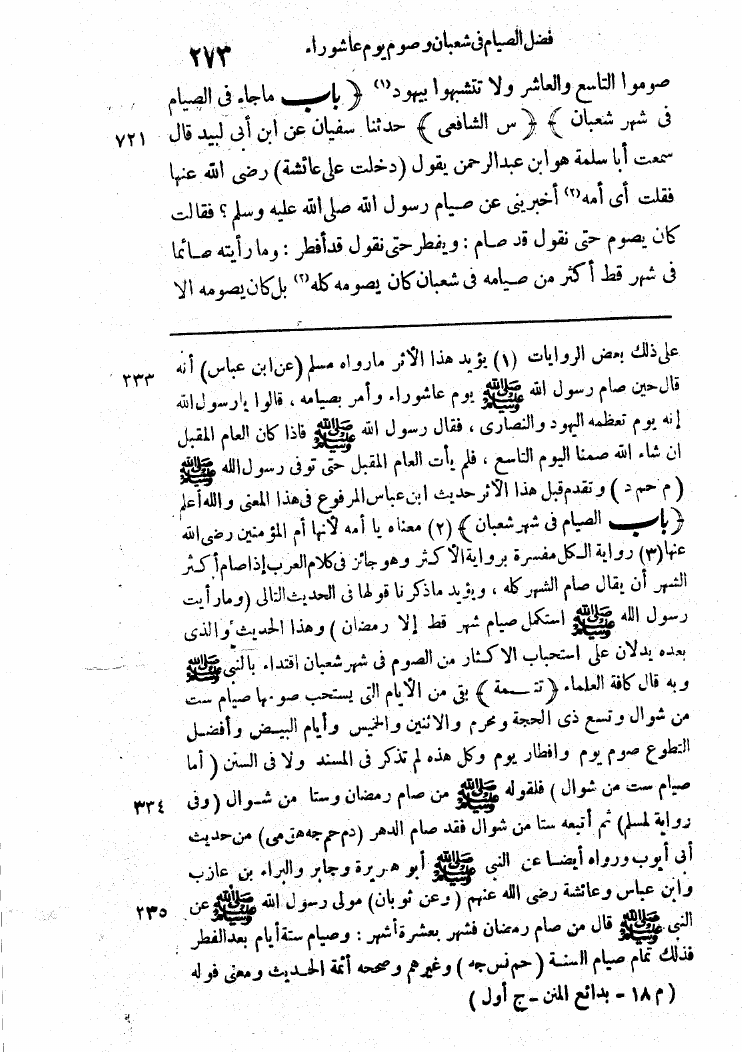 فضل الصيام فى شعبان وصوم يوم عاشوراء
٢٧٣
صوموا التاسع والعاشر ولا تتشبهوا بيهود (١) ﴿ باب ماجاء فى الصيام
فى شهر شعبان ﴾ ﴿ س الشافعى ﴾ حدثنا سفيان عن ابن أبى لبيد قال ٧٢١
سمعت أبا سلمة هو ابن عبدالرحمن يقول (دخلت على عائشة) رضى الله عنها
فقلت أى أمه (٢) أخبرينى عن صيام رسول الله صلى الله عليه وسلم ؟ فقالت
كان يصوم حتى نقول قد صام : ويفطر حتى نقول قد أفطر : وما رأيته صائما
فى شهر قط أكثر من صيامه فى شعبان كان يصومه كله (٣) بل كان يصومه الا
على ذلك بعض الروايات (١) يؤيد هذا الأثر مارواه مسلم (عن ابن عباس) أنه ٢٣٣
قال حين صام رسول الله ﷺ يوم عاشوراء وأمر بصيامه ، قالوا يا رسول الله
إنه يوم تعظمه اليهود والنصارى ، فقال رسول الله ﷺ فاذا كان العام المقبل
ان شاء الله صمنا اليوم التاسع ، فلم يأت العام المقبل حتى توفى رسول الله ﷺ
(م حم د) وتقدم قبل هذا الأثر حديث ابن عباس المرفوع فى هذا المعنى والله أعلم
﴿ باب الصيام فى شهر شعبان ﴾ (٢) معناه يا أمه لأنها أم المؤمنين رضى الله
عنها (٣) رواية الكل مفسرة برواية الأكثر وهو جائز فى كلام العرب إذا صام أكثر
الشهر أن يقال صام الشهر كله ، ويؤيد ماذكرنا قولها فى الحديث التالى (وما رأيت
رسول الله ﷺ استكمل صيام شهر قط إلا رمضان) وهذا الحديث والذى
بعده يدلان على استحباب الاكثار من الصوم فى شهر شعبان اقتداء بالنبى ﷺ
وبه قال كافة العلماء ﴿ تتـمة ﴾ بقى من الأيام التى يستحب صومها صيام ست
من شوال وتسع ذى الحجة ومحرم والاثنين والخميس وأيام البيض وأفضل
التطوع صوم يوم وافطار يوم وكل هذه لم تذكر فى المسند ولا فى السنن (أما
صيام ست من شوال) فلقوله ﷺ من صام رمضان وستا من شوال (وفى ٢٣٤
رواية لمسلم) ثم أتبعه ستا من شوال فقد صام الدهر (دم حم جه هق مى) من حديث
أبى أيوب ورواه أيضا عن النبى ﷺ أبو هريرة وجابر والبراء بن عازب
وابن عباس وعائشة رضى الله عنهم (وعن ثوبان) مولى رسول الله ﷺ عن ٢٣٥
النبى ﷺ قال من صام رمضان فشهر بعشرة أشهر : وصيام ستة أيام بعد الفطر
فذلك تمام صيام السنة (حم نس جه) وغيرهم وصححه أئمة الحديث ومعنى قوله
( م ١٨ - بدائع المنن - ج أول )